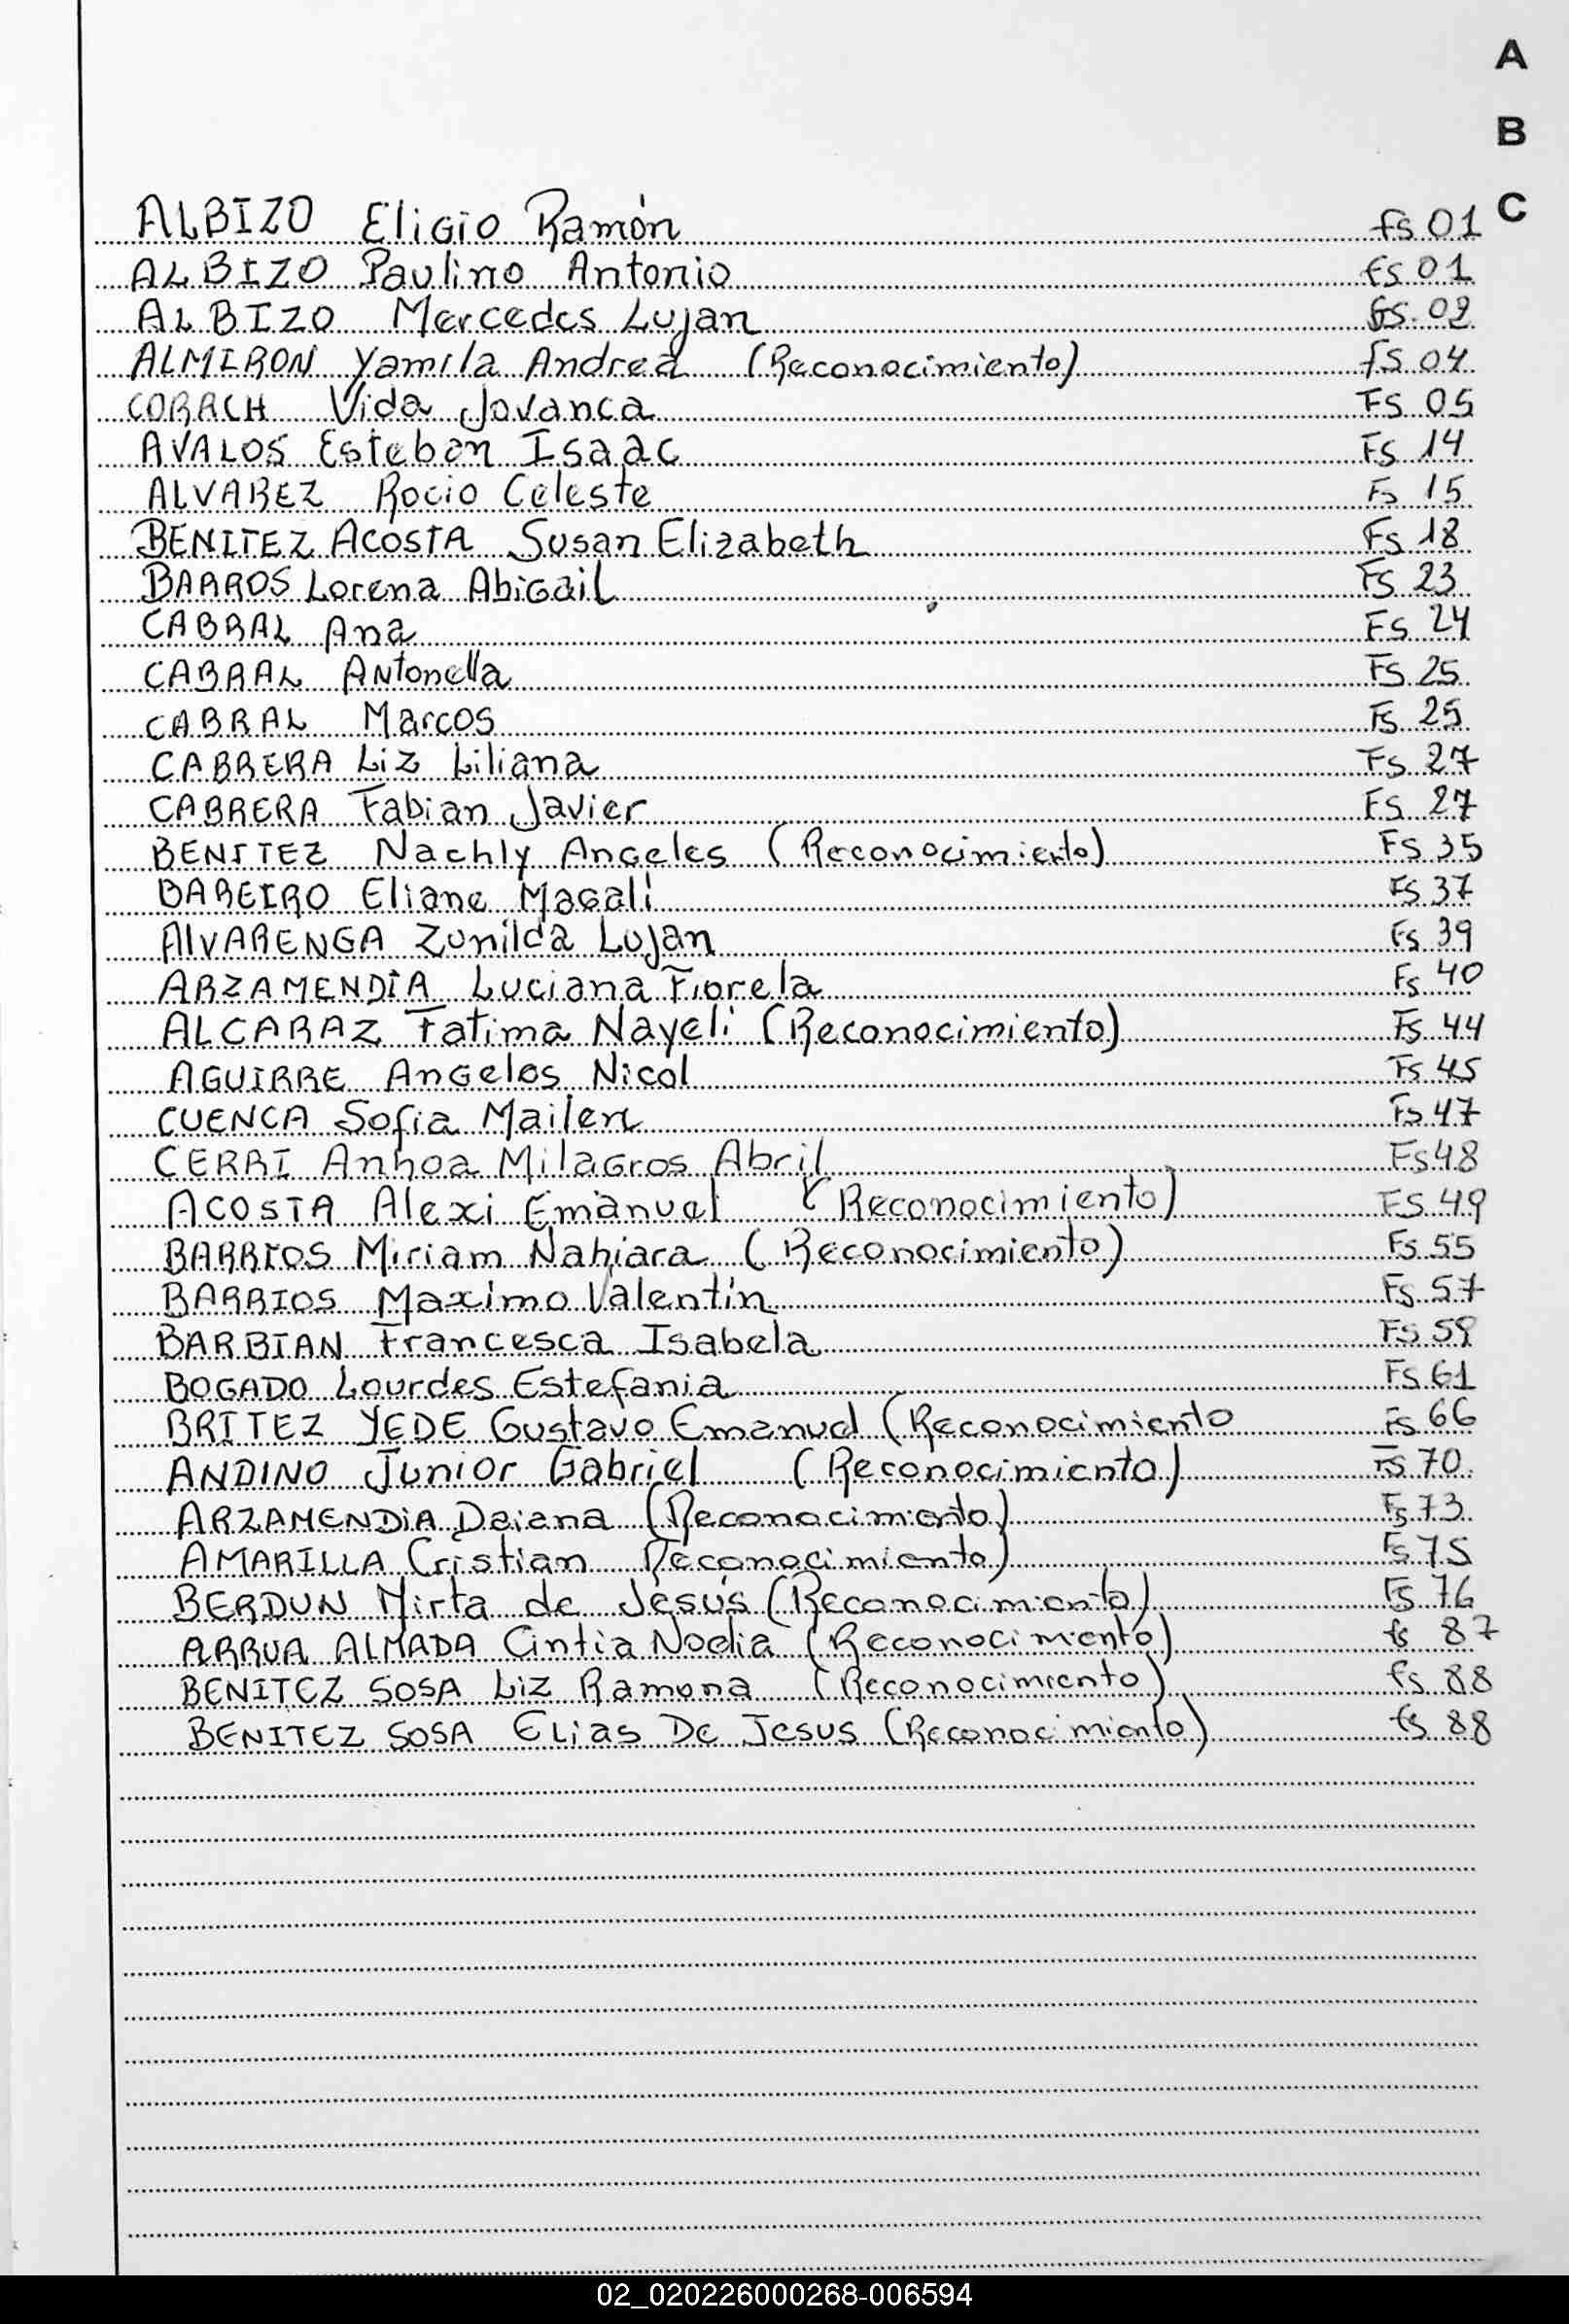 A
B
C
ALBIZO Eligio Ramón fs 01
ALBIZO Paulino Antonio fs 01
ALBIZO Mercedes Lujan fs. 02
ALMIRON Yamila Andrea (Reconocimiento) fs 04
CORACH Vida Jovanca Fs 05
AVALOS Esteban Isaac Fs 14
ALVAREZ Rocio Celeste Fs 15
BENITEZ ACOSTA Susan Elizabeth Fs 18
BARROS Lorena Abigail Fs 23
CABRAL Ana Fs 24
CABRAL Antonella Fs 25
CABRAL Marcos Fs 25
CABRERA Liz Liliana Fs 27
CABRERA Fabian Javier Fs 27
BENITEZ Nachly Angeles (Reconocimiento) Fs 35
BAREIRO Eliane Magali Fs 37
AlVARENGA Zunilda Lujan Fs 39
ARZAMENDIA Luciana Fiorela Fs 40
ALCARAZ Fatima Nayeli (Reconocimiento) Fs 44
AGUIRRE Angeles Nicol Fs 45
CUENCA Sofia Mailen Fs 47
CERRI Anhoa Milagros Abril Fs 48
ACOSTA Alexi Emanuel (Reconocimiento) Fs 49
BARRIOS Miriam Nahiara (Reconocimiento) Fs 55
BARRIOS Maximo Valentin Fs 57
BARBIAN Francesca Isabela Fs 59
BOGADO Lourdes Estefania Fs 61
BRITEZ YEDE Gustavo Emanuel (Reconocimiento Fs 66
ANDINO Junior Gabriel (Reconocimiento) Fs 70
ARZAMENDIA Daiana (Reconocimiento) Fs 73
AMARILLA Cristian Reconocimiento) Fs 75
BERDUN Mirta de Jesús (Reconocimiento) Fs 76
ARRUA ALMADA Cintia Noelia (Reconocimiento) fs 87
BENITEZ SOSA Liz Ramona (Reconocimiento) fs 88
BENITEZ SOSA Elias De Jesus (Reconocimiento) fs 88
02_020226000268-006594